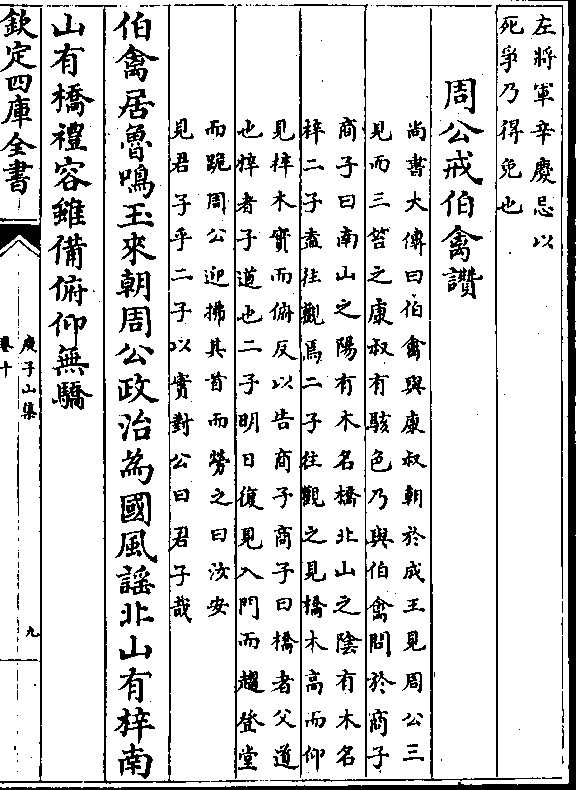 左將軍辛慶忌以
死爭乃得免也
周公戒伯禽讚
尚書大傳曰伯禽與康叔朝於成王見周公三
見而三笞之康叔有駭色乃與伯禽問於商子
商子曰南山之陽有木名橋北山之隂有木名
梓二子盍往觀焉二子往觀之見橋木高而仰
見梓木實而俯反以告商子商子曰橋者父道
也梓者子道也二子明日復見入門而趨登堂
而跪周公迎拂其首而勞之曰汝安
見君子乎二子以實對公曰君子哉
伯禽居魯鳴玉來朝周公政治為國風謡北山有梓南
山有橋禮容雖備俯仰無驕
欽定四庫全書
庾子山集
卷十
九